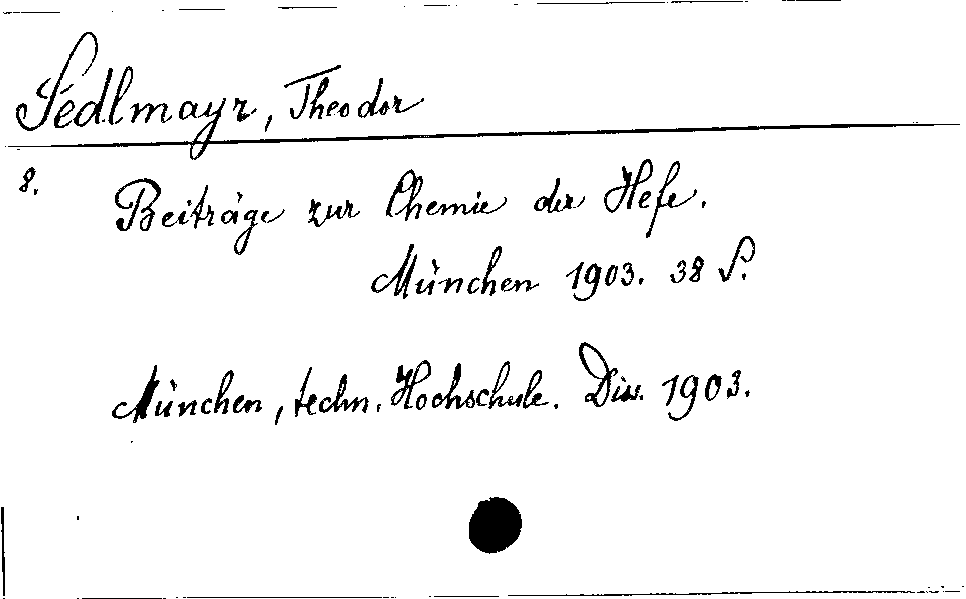 Sedlmayr, Theodor
8.
Beiträge zur Chemie der Hefe.
München 1903. 38 S.
München, techn. Hochschule. Diss. 1903.